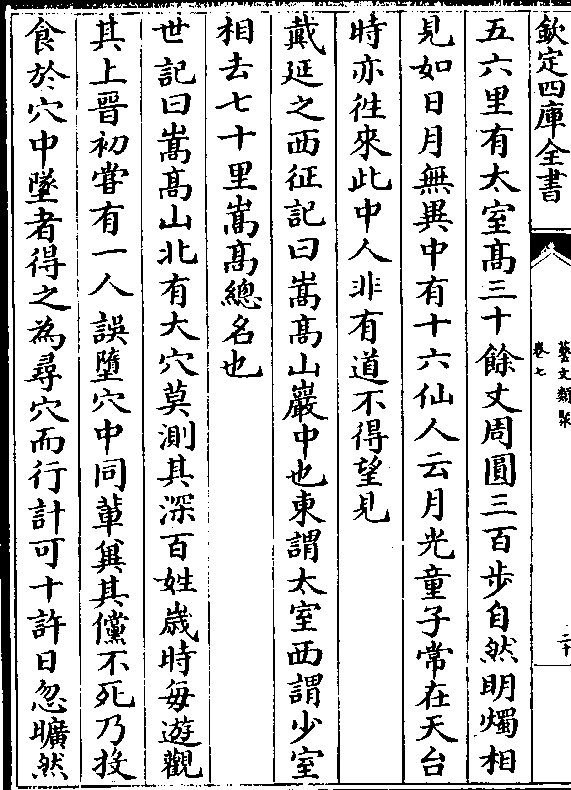 欽定四庫全書
藝文類聚
卷七
二十
五六里有太室高三十餘丈周圓三百步自然明燭相
見如日月無異中有十六仙人云月光童子常在天台
時亦徃來此中人非有道不得望見
戴延之西征記曰嵩高山巖中也東謂太室西謂少室
相去七十里嵩高總名也
世記曰嵩高山北有大穴莫測其深百姓嵗時毎遊觀
其上晉初甞有一人誤墮穴中同軰兾其儻不死乃投
食於穴中墜者得之為尋穴而行計可十許日忽曠然